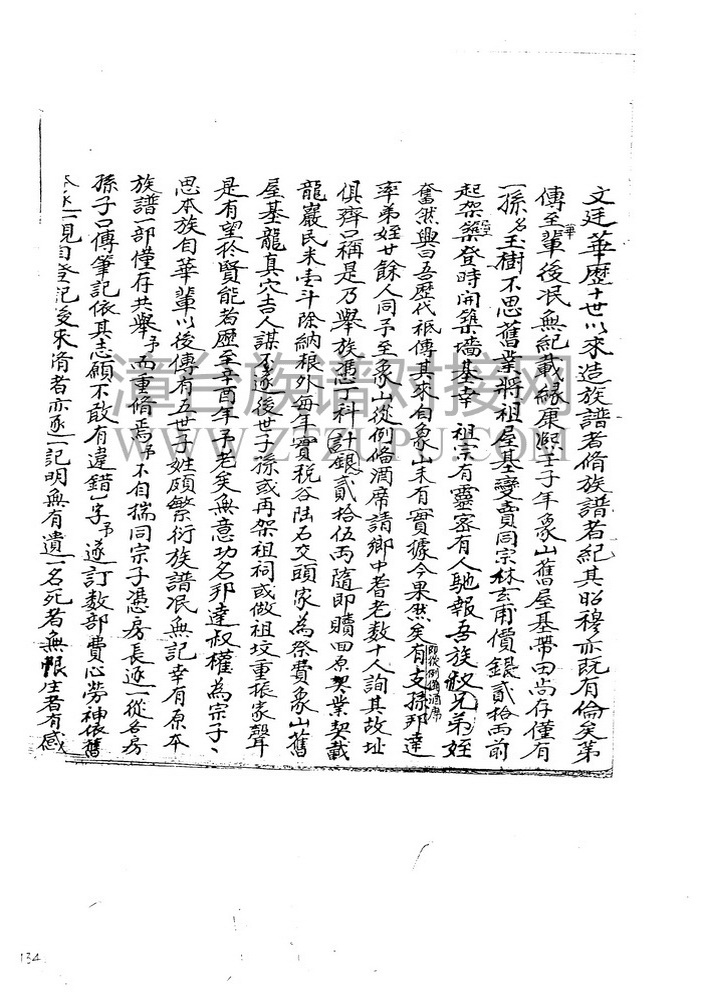 文廷華歷十世以來造族譜者脩族譜者紀其昭穆亦既有倫矣第
傳至華輩後泯無紀載緣康熙壬子年象山舊屋基帶田尚存僅有
一孫名玉樹不思舊業將祖屋基變賣同宗林玄甫價銀貳拾兩前
起架築登時開築墻基幸祖宗有靈密有人馳報吾族叔兄弟姪
奮然興曰吾歷代祇傳其來自象山未有實據今果然矣有支孫邦達
即從例備酒席
率弟姪廿餘人同予至象山從例備酒席請鄉中耆老數十人詢其故址
俱齊口稱是乃舉族憑丁科計銀貳拾伍兩隨即贖回原契業契載
龍巖民米壹斗除納粮外每年實稅谷陆石交頭家為祭費象山舊
屋基龍真穴吉人謀不遂後世子孫或再架祖祠或做祖坟重振家聲
是有望於賢能者歷至辛酉年予老矣無意功名邦達叔權為宗子、
思本族自華輩以後傳有五世子姓頗繁衍族譜泯無記幸有原本
族譜一部僅存共舉予而重脩焉予不自揣同宗子憑房長逐一從各房
孫子口傳筆記依其志願不敢有違錯乚字予遂訂数部費心勞神依舊
逐一現自登記後來脩者亦逐一記明無有遺一名死者無恨生者有感
漳台族谱对接网
WWW.ZTZUPU.COM
134